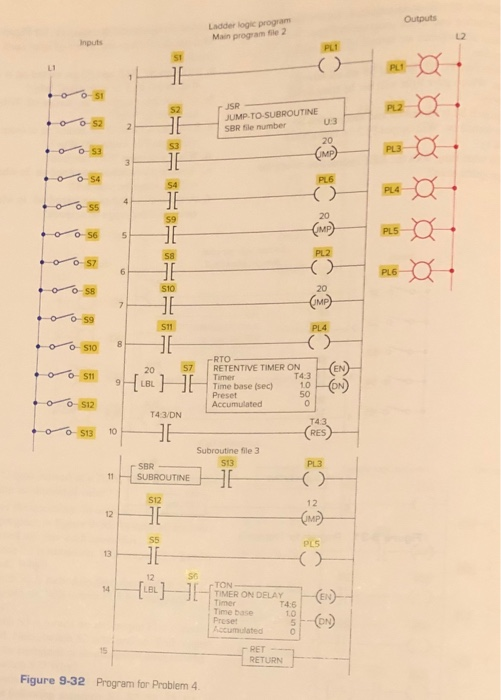 Ladder logic program
Main program file 2
Inputs
Outputs
L1
L2
S1
S2
S3
S4
S5
S6
S7
S8
S9
S10
S11
S12
S13
1
S1
PL1
2
S2
JSR
JUMP-TO-SUBROUTINE
SBR file number U:3
3
S3
20
JMP
4
S4
PL6
5
S9
20
JMP
6
S8
PL2
7
S10
20
JMP
8
S11
PL4
9
20
LBL
S7
RTO
RETENTIVE TIMER ON
Timer T4:3
Time base (sec) 1.0
Preset 50
Accumulated 0
EN
DN
10
T4:3/DN
T4:3
RES
PL1
PL2
PL3
PL4
PL5
PL6
Subroutine file 3
11
SBR
SUBROUTINE
S13
PL3
12
S12
12
JMP
13
S5
PL5
14
12
LBL
TON
TIMER ON DELAY
Timer T4:6
Time base 1.0
Preset 5
Accumulated 0
EN
DN
15
RET
RETURN
Figure 9-32 Program for Problem 4.